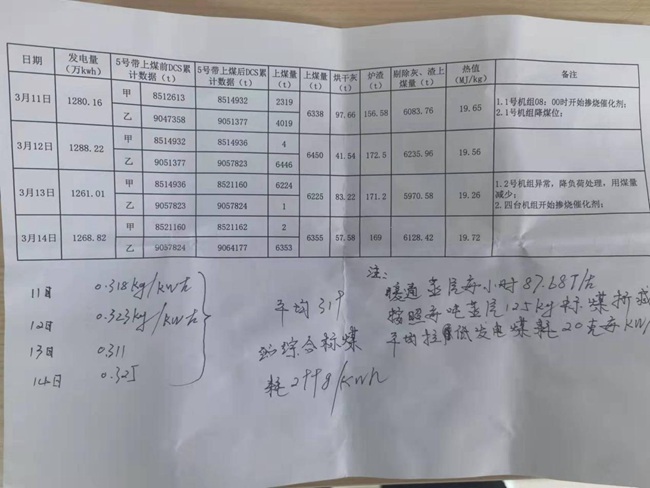 日期 发电量(万kwh) 5号带上煤前DCS累计数据(t) 5号带上煤后DCS累计数据(t) 上煤量(t) 上煤量(t) 烘干灰(t) 炉渣(t) 剔除灰、渣上煤量(t) 热值(MJ/kg) 备注
3月11日 1280.16 甲 8512613 8514932 2319 6338 97.66 156.58 6083.76 19.65 1.1号机组08:00时开始掺烧催化剂;
乙 9047358 9051377 4019 2.1号机组降煤位;
3月12日 1288.22 甲 8514932 8514936 4 6450 41.54 172.5 6235.96 19.56
乙 9051377 9057823 6446
3月13日 1261.01 甲 8514936 8521160 6224 6225 83.22 171.2 5970.58 19.26 1.2号机组异常,降负荷处理,用煤量减少;
乙 9057823 9057823 1 2.四台机组开始掺烧催化剂;
3月14日 1268.82 甲 8521160 8521162 2 6355 57.58 169 6128.42 19.72
乙 9057824 9064177 6353
11日 0.318kg/kw古
12日 0.323kg/kw古
13日 0.311
14日 0.325
平均319
综合标煤
耗299g/kwh
注:
暖通蒸尾每小时87.68T/古
按照每吨蒸尾125kg标煤折
平均拉低发电煤耗20克每kw